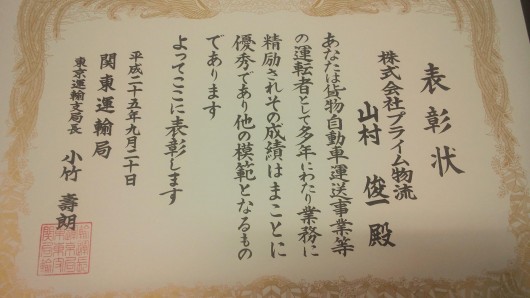 表彰状
株式会社プライム物流
山村 俊一 殿
あなたは貨物自動車運送事業等
の運転者として多年にわたり業務に
精励されその成績はまことに
優秀であり他の模範となるもの
であります
よってここに表彰します
平成二十五年九月二十日
関東運輸局
東京運輸支局長 小竹 壽朗